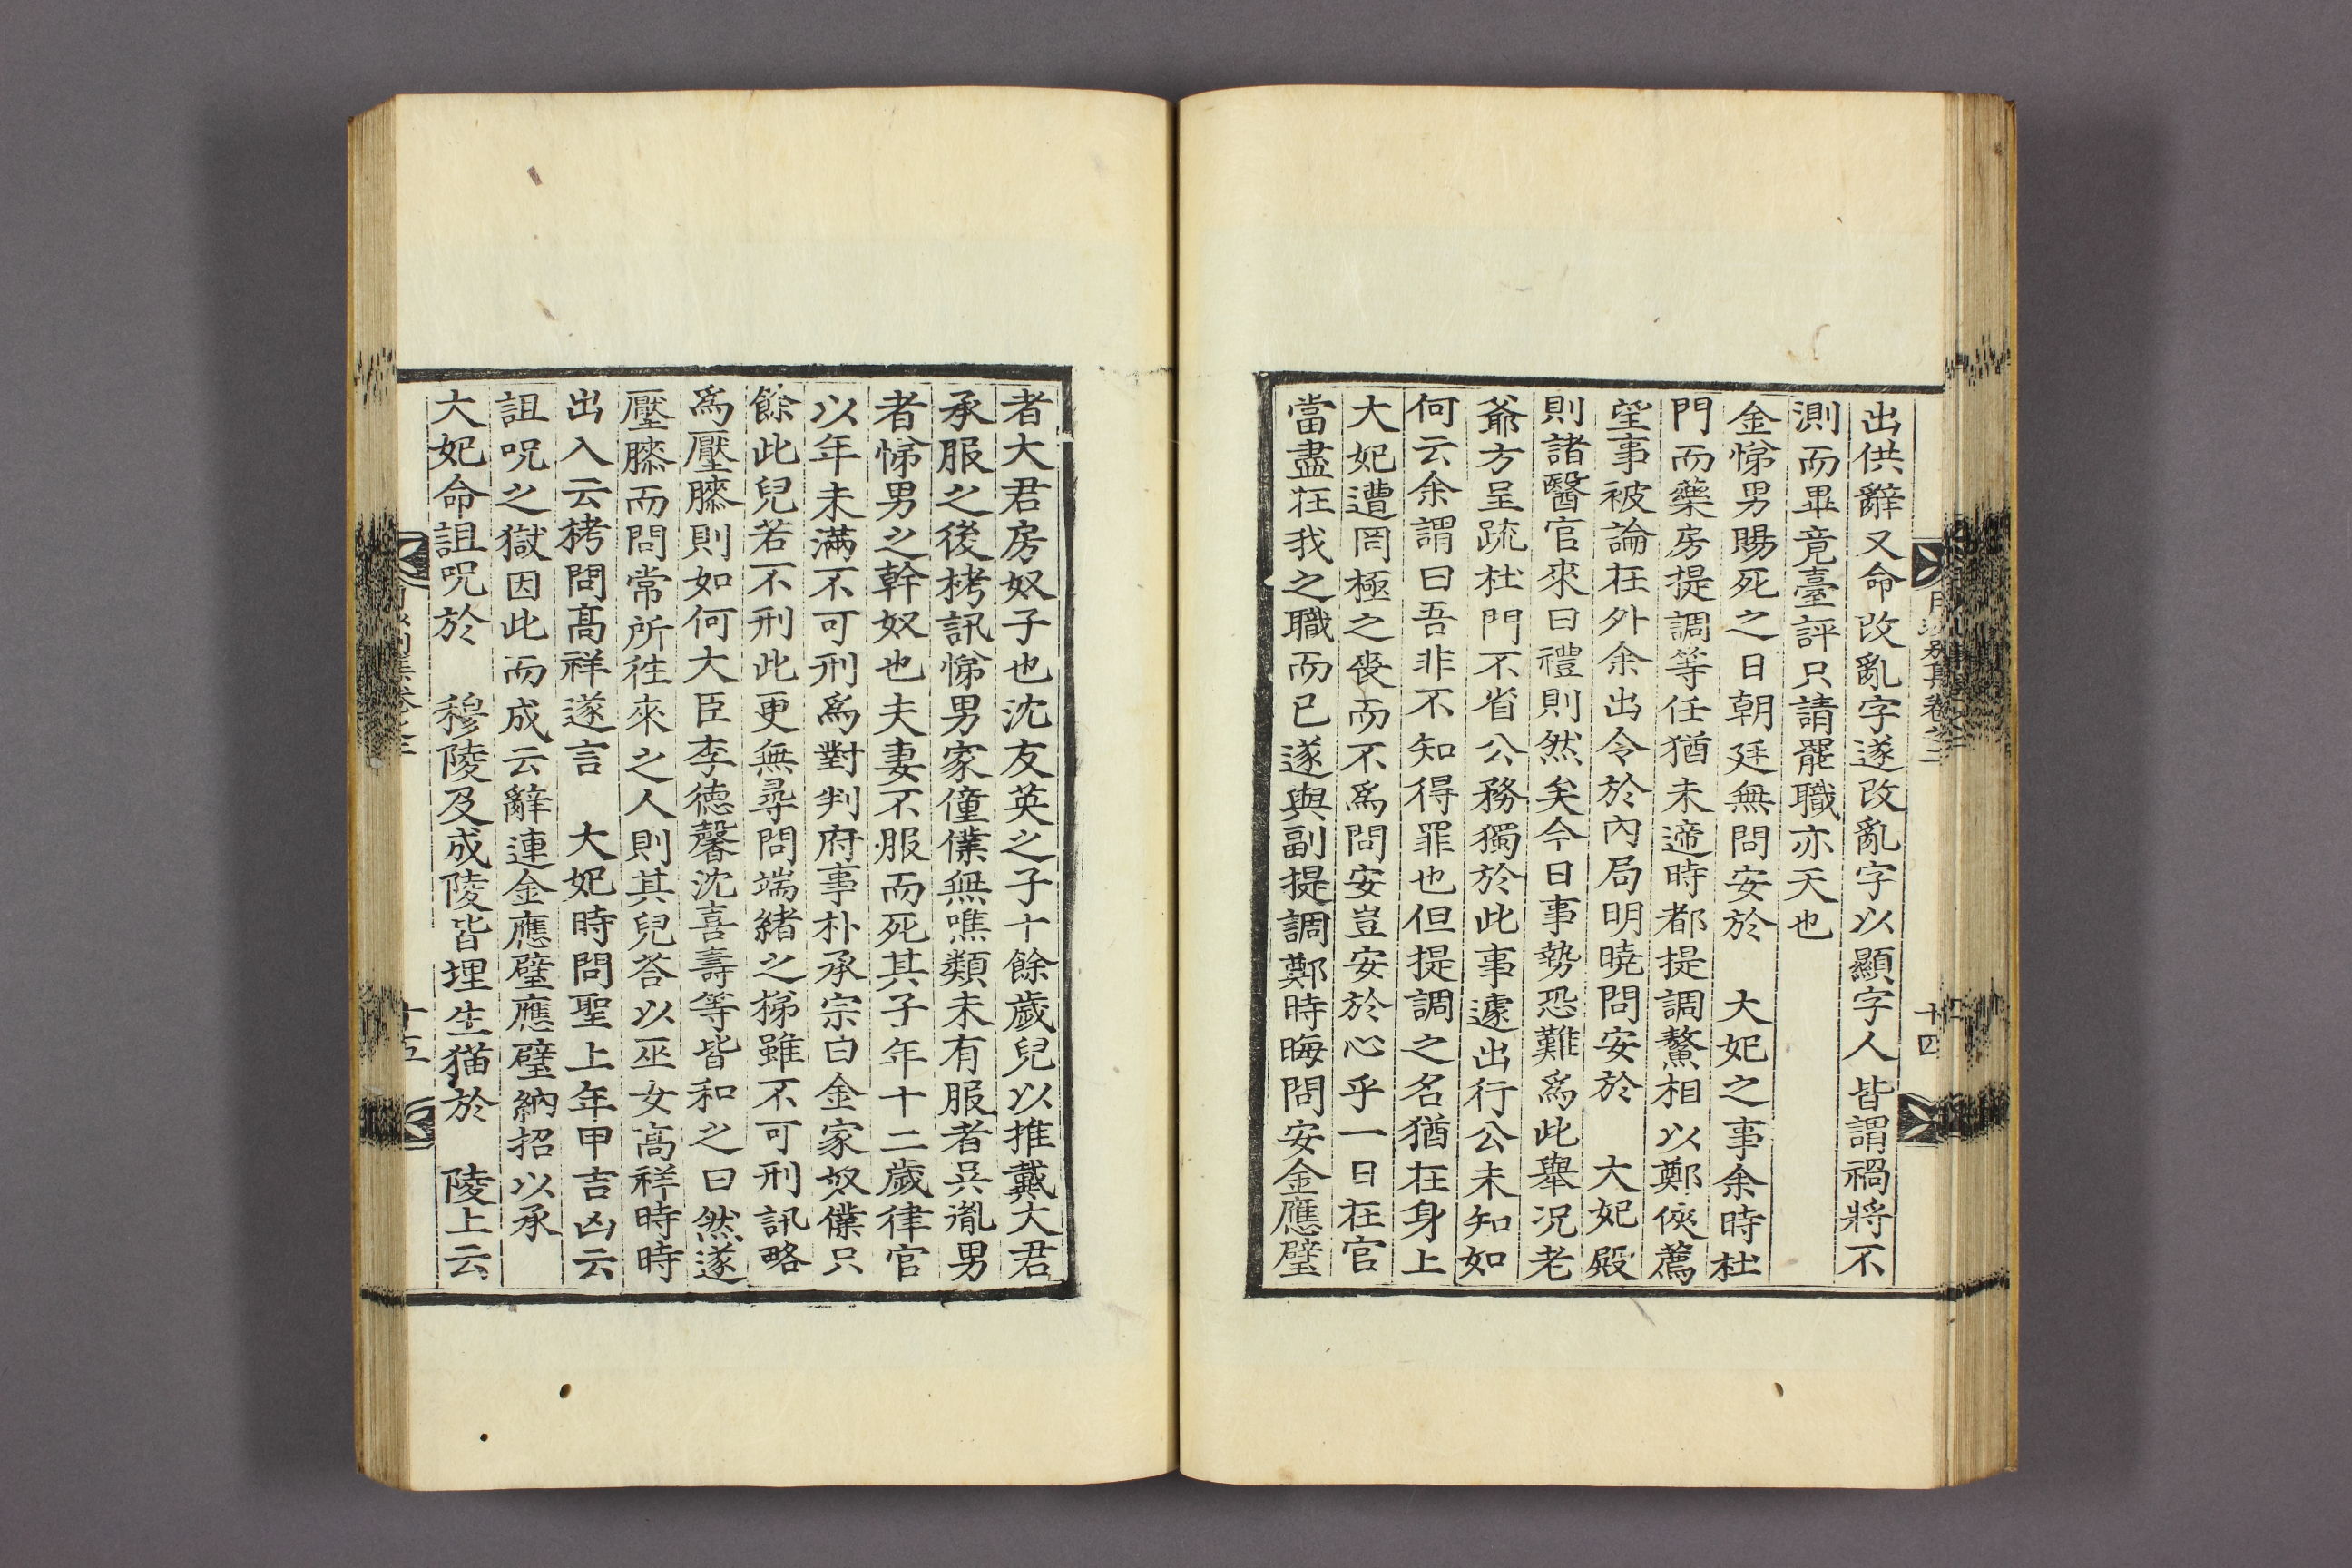 出供辭又命改亂字遂改亂字以顯字人皆謂禍將不
測而畢竟臺評只請罷職亦天也
金悌男賜死之日朝廷無問安於　大妃之事余時杜
門而藥房提調等任猶未遞時都提調鰲相以鄭俠薦
望事被論在外余出令於內局明曉問安於　大妃殿
則諸醫官來曰禮則然矣今日事勢恐難爲此擧况老
爺方呈疏杜門不省公務獨於此事遽出行公未知如
何云余謂曰吾非不知得罪也但提調之名猶在身上
大妃遭罔極之喪而不爲問安豈安於心乎一日在官
當盡在我之職而已遂與副提調鄭時晦問安金應璧
者大君房奴子也沈友英之子十餘歲兒以推戴大君
承服之後栲訊悌男家僮僕無噍類未有服者吳胤男
者悌男之幹奴也夫妻不服而死其子年十二歲律官
以年未滿不可刑爲對判府事朴承宗白金家奴僕只
餘此兒若不刑此更無尋問端緖之梯雖不可刑訊略
爲壓膝則如何大臣李德馨沈喜壽等皆和之曰然遂
壓膝而問常所徃來之人則其兒荅以巫女高祥時時
出入云栲問高祥遂言　大妃時問聖上年甲吉凶云
詛呪之獄因此而成云辭連金應璧應璧納招以承
大妃命詛呪於　穆陵及成陵皆埋生猫於　陵上云
十四
十五